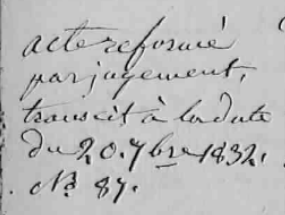 acte reformé
par jugement,
transcit à la date
du 20. 7bre 1832.
No. 87.